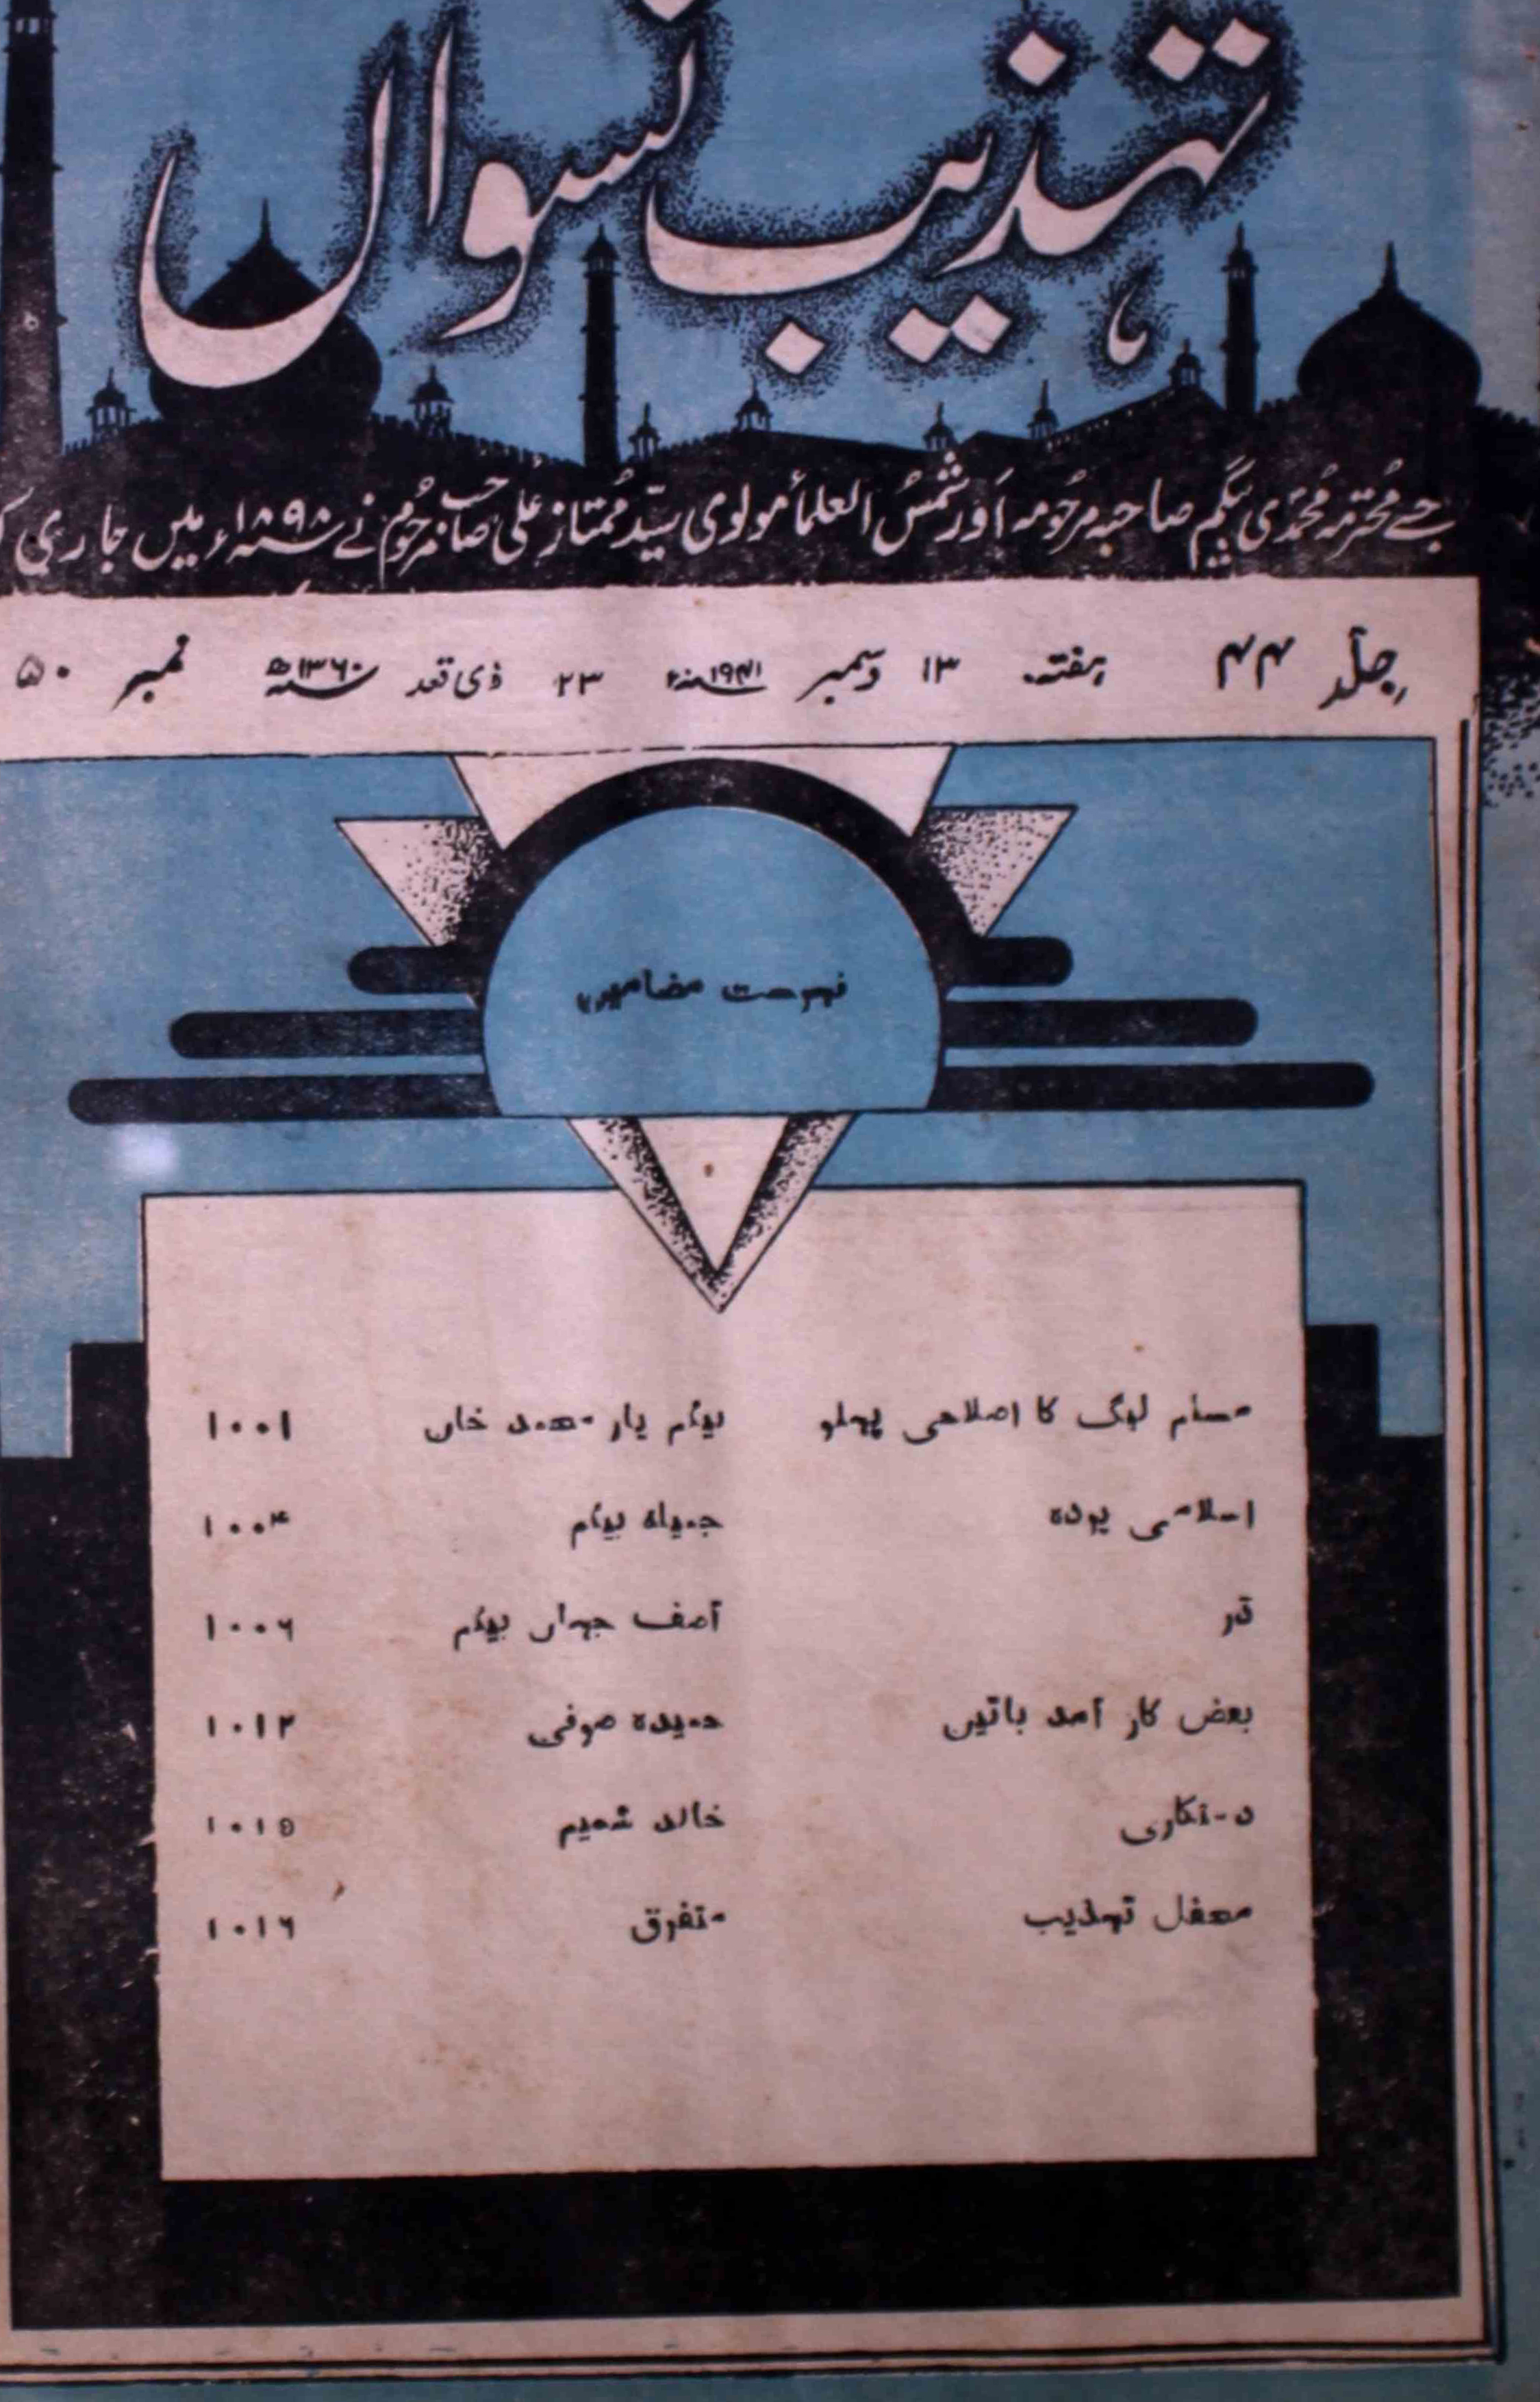 تہذیب نسواں
جسے محترمہ محمدی بیگم صاحبہ مرحومہ اور شمس العلما مولوی سید ممتاز علی صاحب مرحوم نے ۱۸۹۸ء میں جاری
جلد ۴۴ ہفتہ ۱۳ دسمبر ۱۹۴۱ء ۲۳ ذی قعد ۱۳۶۰ھ نمبر ۵۰
فہرست مضامین
مسلم لیگ کا اصلاحی پہلو بیگم یار محمد خاں ۱۰۰۱
اسلامی پودہ جمیلہ بیگم ۱۰۰۴
قدر آصف جہاں بیگم ۱۰۰۶
بعض کار آمد باتیں حمیدہ صوفی ۱۰۱۲
دستکاری خالدہ شمیم ۱۰۱۵
محفل تہذیب متفرق ۱۰۱۶